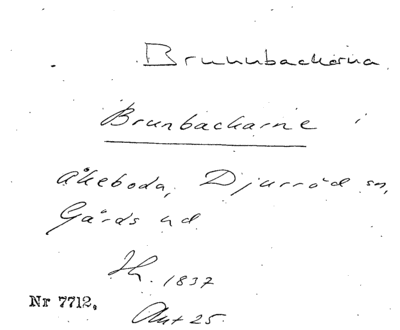 Brunnbackarna
Brunbackarne i
Åkeboda, Djurröd sn,
Gärds hd
Sk. 1837
Nr 7712.
Akt 25.